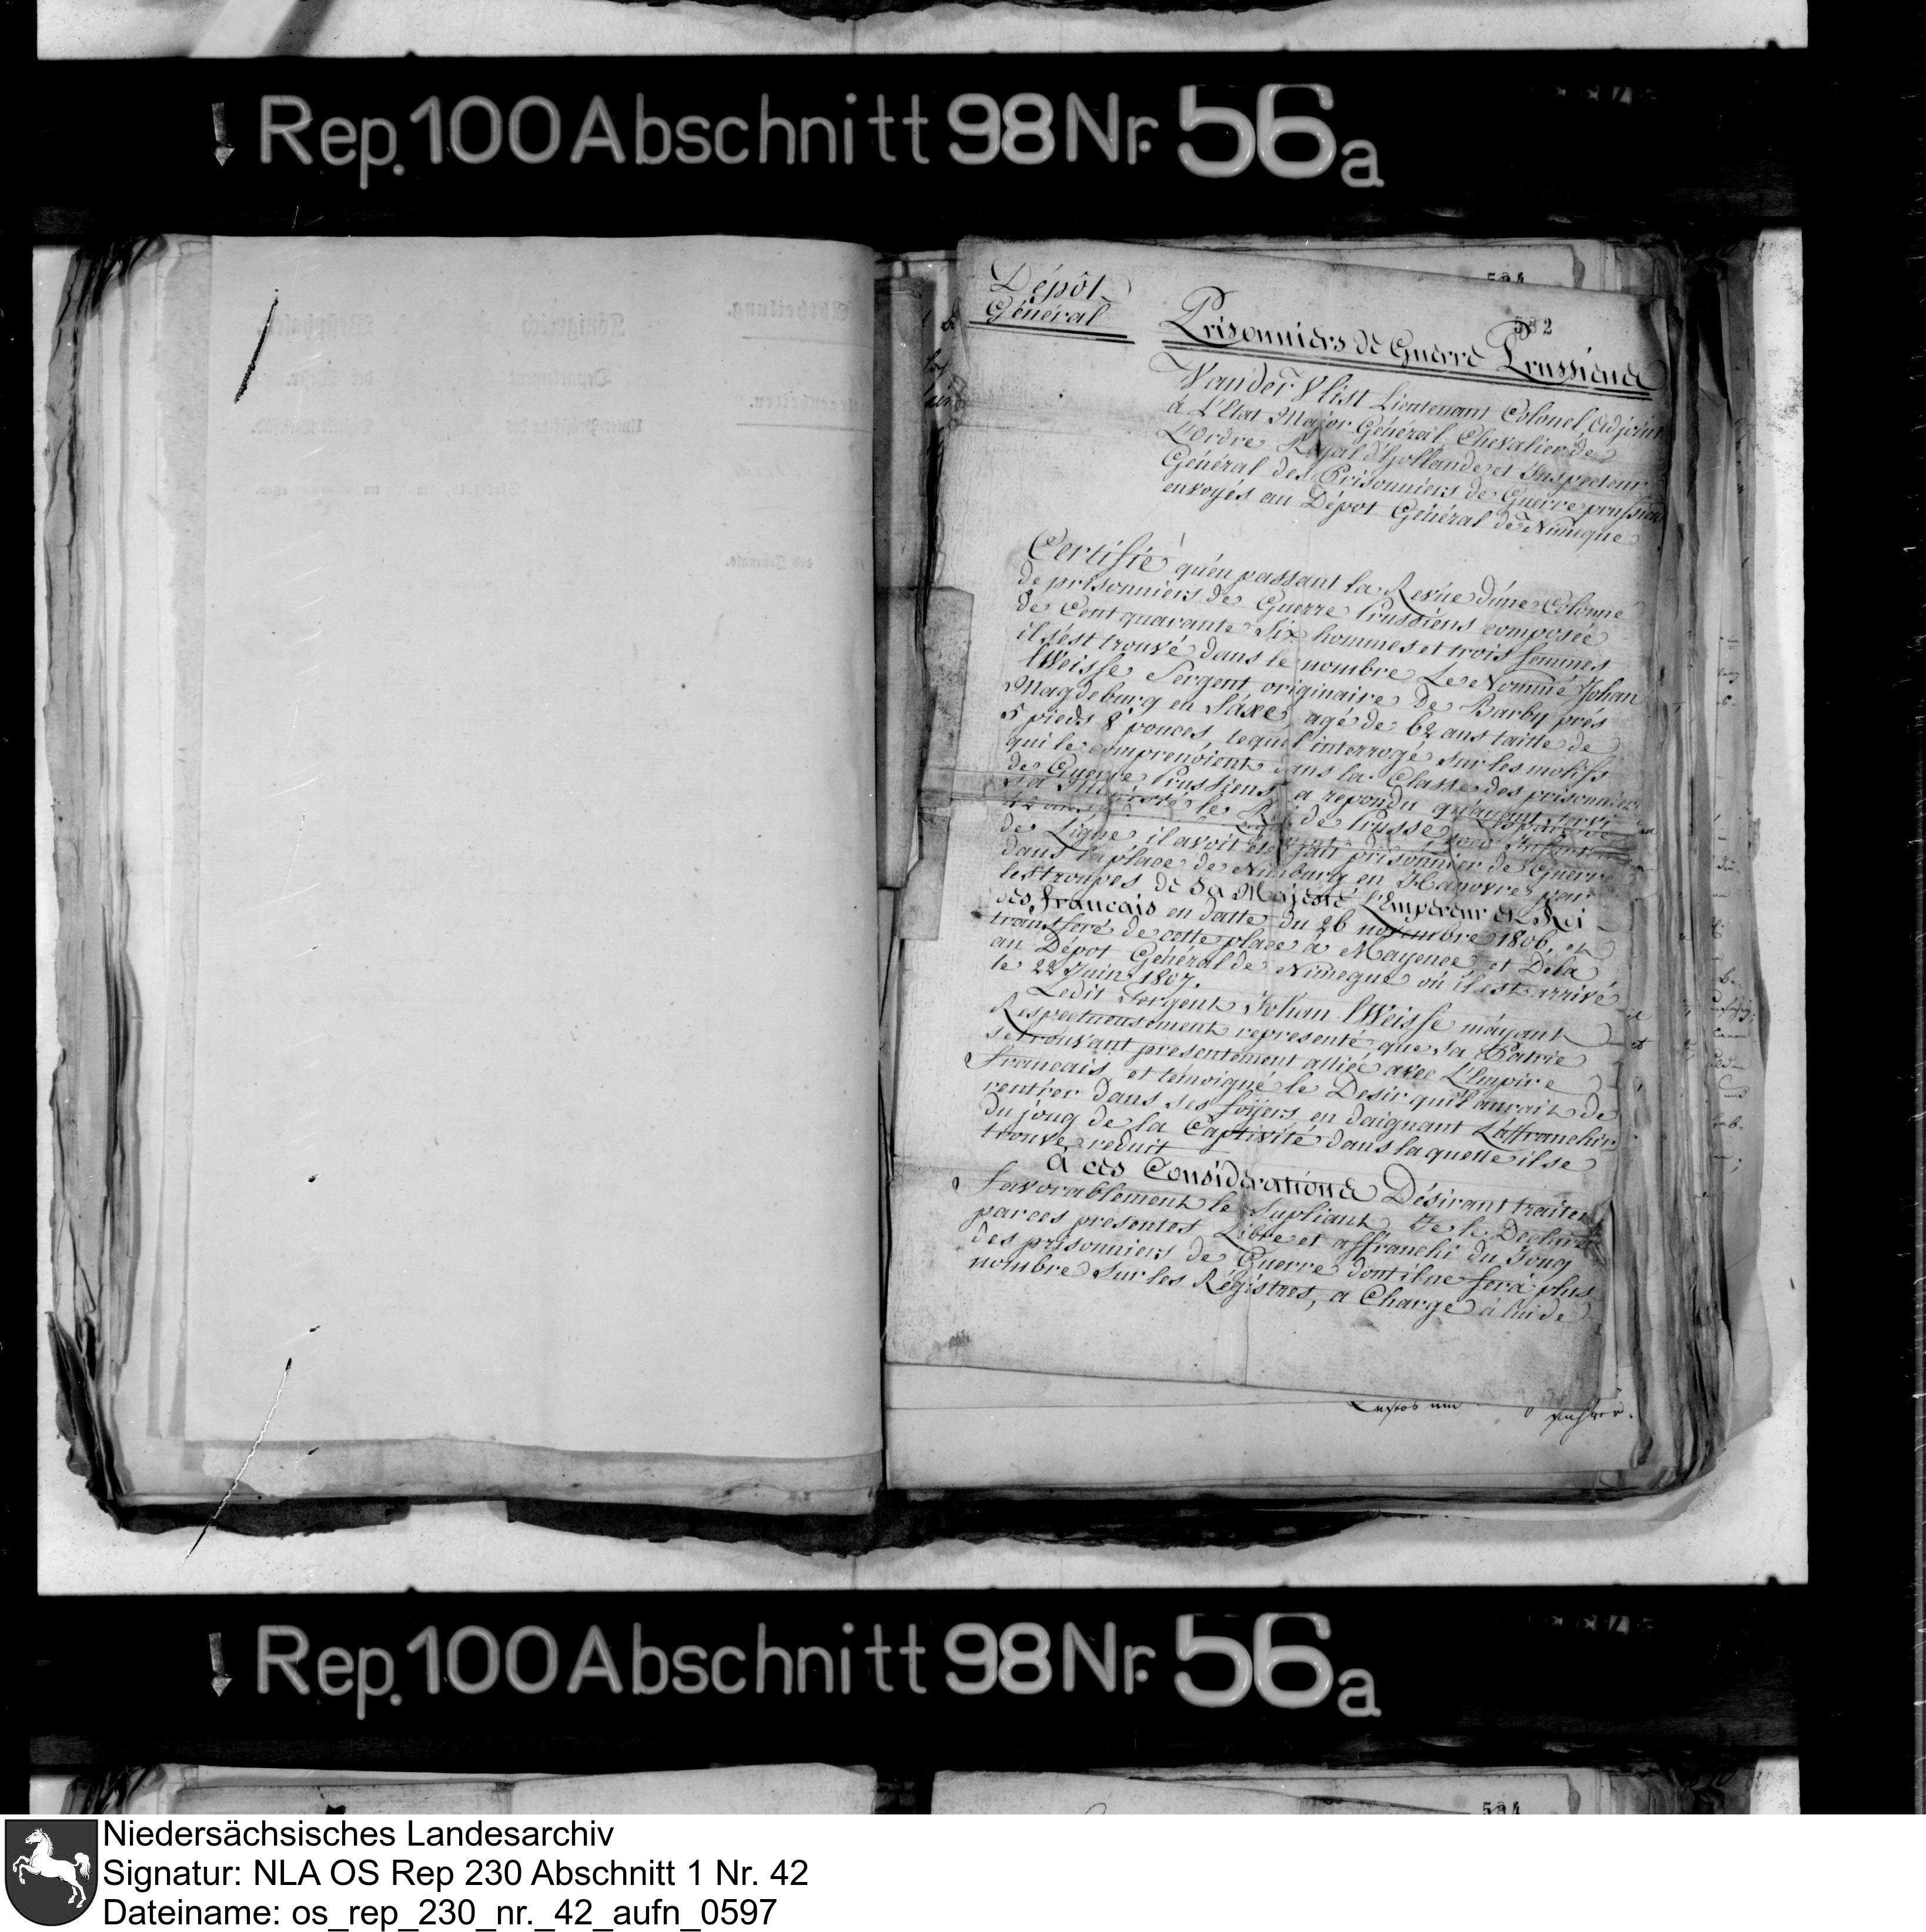 Rep. 100 Abschnitt 98 Nr. 56a
594
Dépôt
Général
582
Prisonniers de Guerre Prussiens
Van der Vlist Lieutenant Colonel, Adjoint
à L'Etat Major Général, Chevalier de
L'Ordre Royal d'Hollande et Inspecteur
Général des Prisonniers de Guerre prussiens
envoyés au Dépot Général de Nimegue
Certifié qu'en passant la Revüe d'une Colonne
de prisonniers de Guerre Prussiens composée
de Cent quarante Six hommes et trois femmes
il s'est trouvé dans le nombre Le Nommé Johan
Weisse Sergent originaire de Barby prés
Magdeburg en Saxe, agé de 62 ans taille de
5 pieds 8 pouces, lequel interrogé sur les motifs
qui le comprenoient dans la Classe des prisonniers
de Guerre Prussiens, a repondu qu'ayant servi
Sa Majesté le Roi de Prusse
de Ligne il avoit été fait prisonnier de Guerre
dans la place de Nienburg en Hanovre par
les troupes de Sa Majesté l'Empereur et Roi
des Francais en datte du 26 novembre 1806, et
transferé de cette place à Mayence et Delà
au Dépot Général de Nimegue où il est arrivé
le 22 Juin 1807.
Ledit Sergent Johan Weisse m'ayant
Respectueusement representé que sa Patrie
se trouvant presentement alliée avec L'Empire
francais et témoigné le Desir qu'il aurait de
rentrer dans ses foÿers, en daignant L'affranchir
du joug de la Captivité dans laquelle il se
trouve reduit
à ces Considerations Désirant traiter
favorablement le Supliant Je le Declare
par ces presentes Libre et affranchi du Joug
des prisonniers de Guerre dont il ne fera plus
nombre sur les Régistres, a Charge à lui de
Rep. 100 Abschnitt 98 Nr. 56a
594
Niedersächsisches Landesarchiv
Signatur: NLA OS Rep 230 Abschnitt 1 Nr. 42
Dateiname: os_rep_230_nr._42_aufn_0597